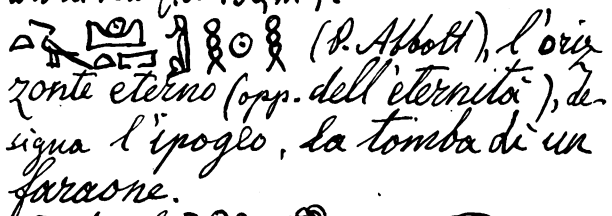 (P. Abbott), l'oriz
zonte eterno (opp. dell'eternità), de-
signa l'ipogeo, la tomba di un
faraone.